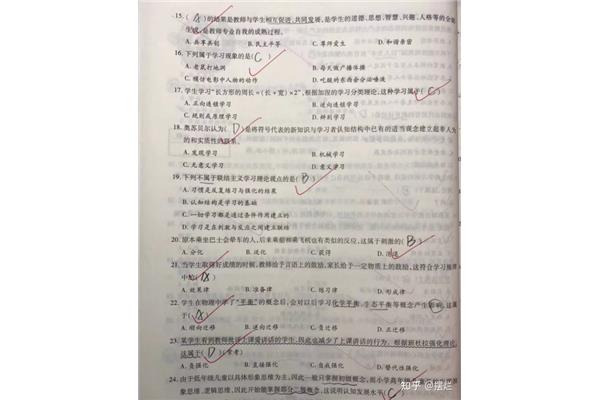 15. ( A )的结果是教师与学生相互促进、共同发展,是学生的道德、思想、智慧、兴趣、人格等的全面
生成,是教师专业自我的成熟过程。
A. 共享共创 B. 民主平等 C. 尊师爱生 D. 和谐亲密
16. 下列属于学习现象的是( C )
A. 老鼠打地洞 B. 每天做广播体操
C. 模仿电影中人物的动作 D. 吃酸的东西会分泌唾液
17. 学生学习“长方形的周长=(长+宽)×2”,根据加涅的学习分类理论,这种学习属于( C )
A. 正向连锁学习 B. 逆向连锁学习
C. 规则或原理学习 D. 辨别学习
18. 奥苏贝尔认为( D )是将符号代表的新知识与学习者认知结构中已有的适当观念建立起非人为
的和实质性的联系。
A. 发现学习 B. 机械学习
C. 无意义学习 D. 意义学习
19. 下列不属于联结主义学习理论观点的是( B )
A. 习惯是反复练习与强化的结果
B. 认知结构是学习的基础
C. 一切学习都是通过条件作用建立的
D. 学习是在刺激与反应之间建立联结
20. 原本乘坐巴士会晕车的人,后来乘船和乘飞机也有类似的反应,这属于刺激的( B )
A. 分化 B. 泛化 C. 获得 D. 消退
21. 当学生取得好成绩的时候,教师给予言语上的鼓励,家长给予一定物质上的鼓励,这符合学习规律
中的( A )
A. 效果律 B. 准备律 C. 练习律 D. 形成律
22. 学生在物理中学了“平衡”的概念后,会对以后学习化学平衡、生态平衡等概念产生影响,这属
于( A )
A. 顺向迁移 B. 逆向迁移 C. 负迁移 D. 正迁移
23. 某学生看到教师批评上课讲话的学生,因此也减少了上课讲话的行为。根据班杜拉强化理论,
这属于( D )(常考)
A. 负强化 B. 直接强化 C. 自我强化 D. 替代性强化
24. 由于低年级儿童以具体形象思维为主,因此一般只掌握初级概念,而小学高年级
象思维、逻辑思维,因此开始能掌握部分二级概念,这说明认知发展水平( C
知乎 @摆烂